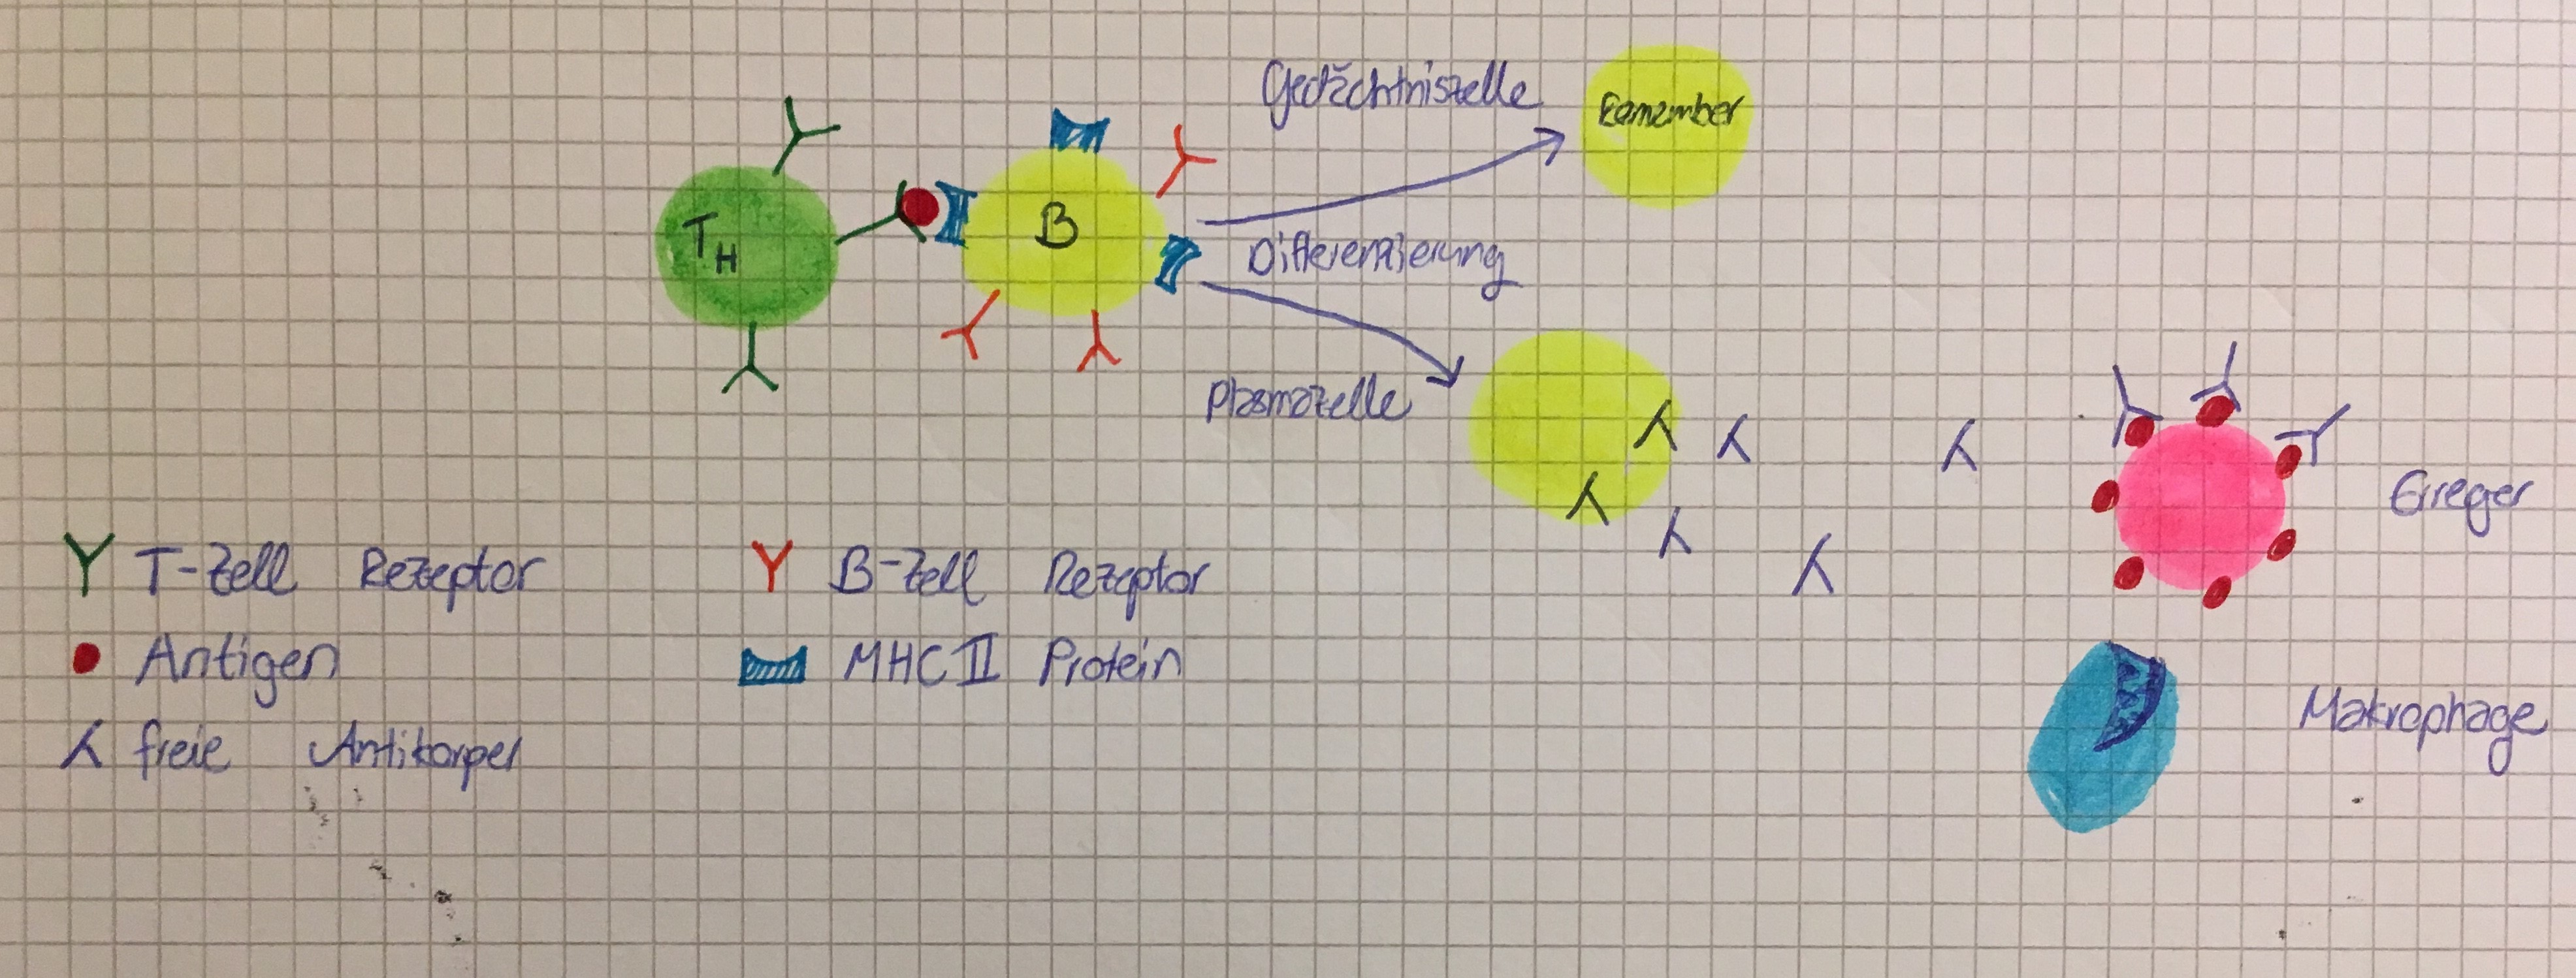 Gedächtniszelle
Remember
TH
B
Differenzierung
Plasmazelle
Erreger
Y T-Zell Rezeptor
Y B-Zell Rezeptor
Antigen
MHC II Protein
freie Antikorper
Makrophage